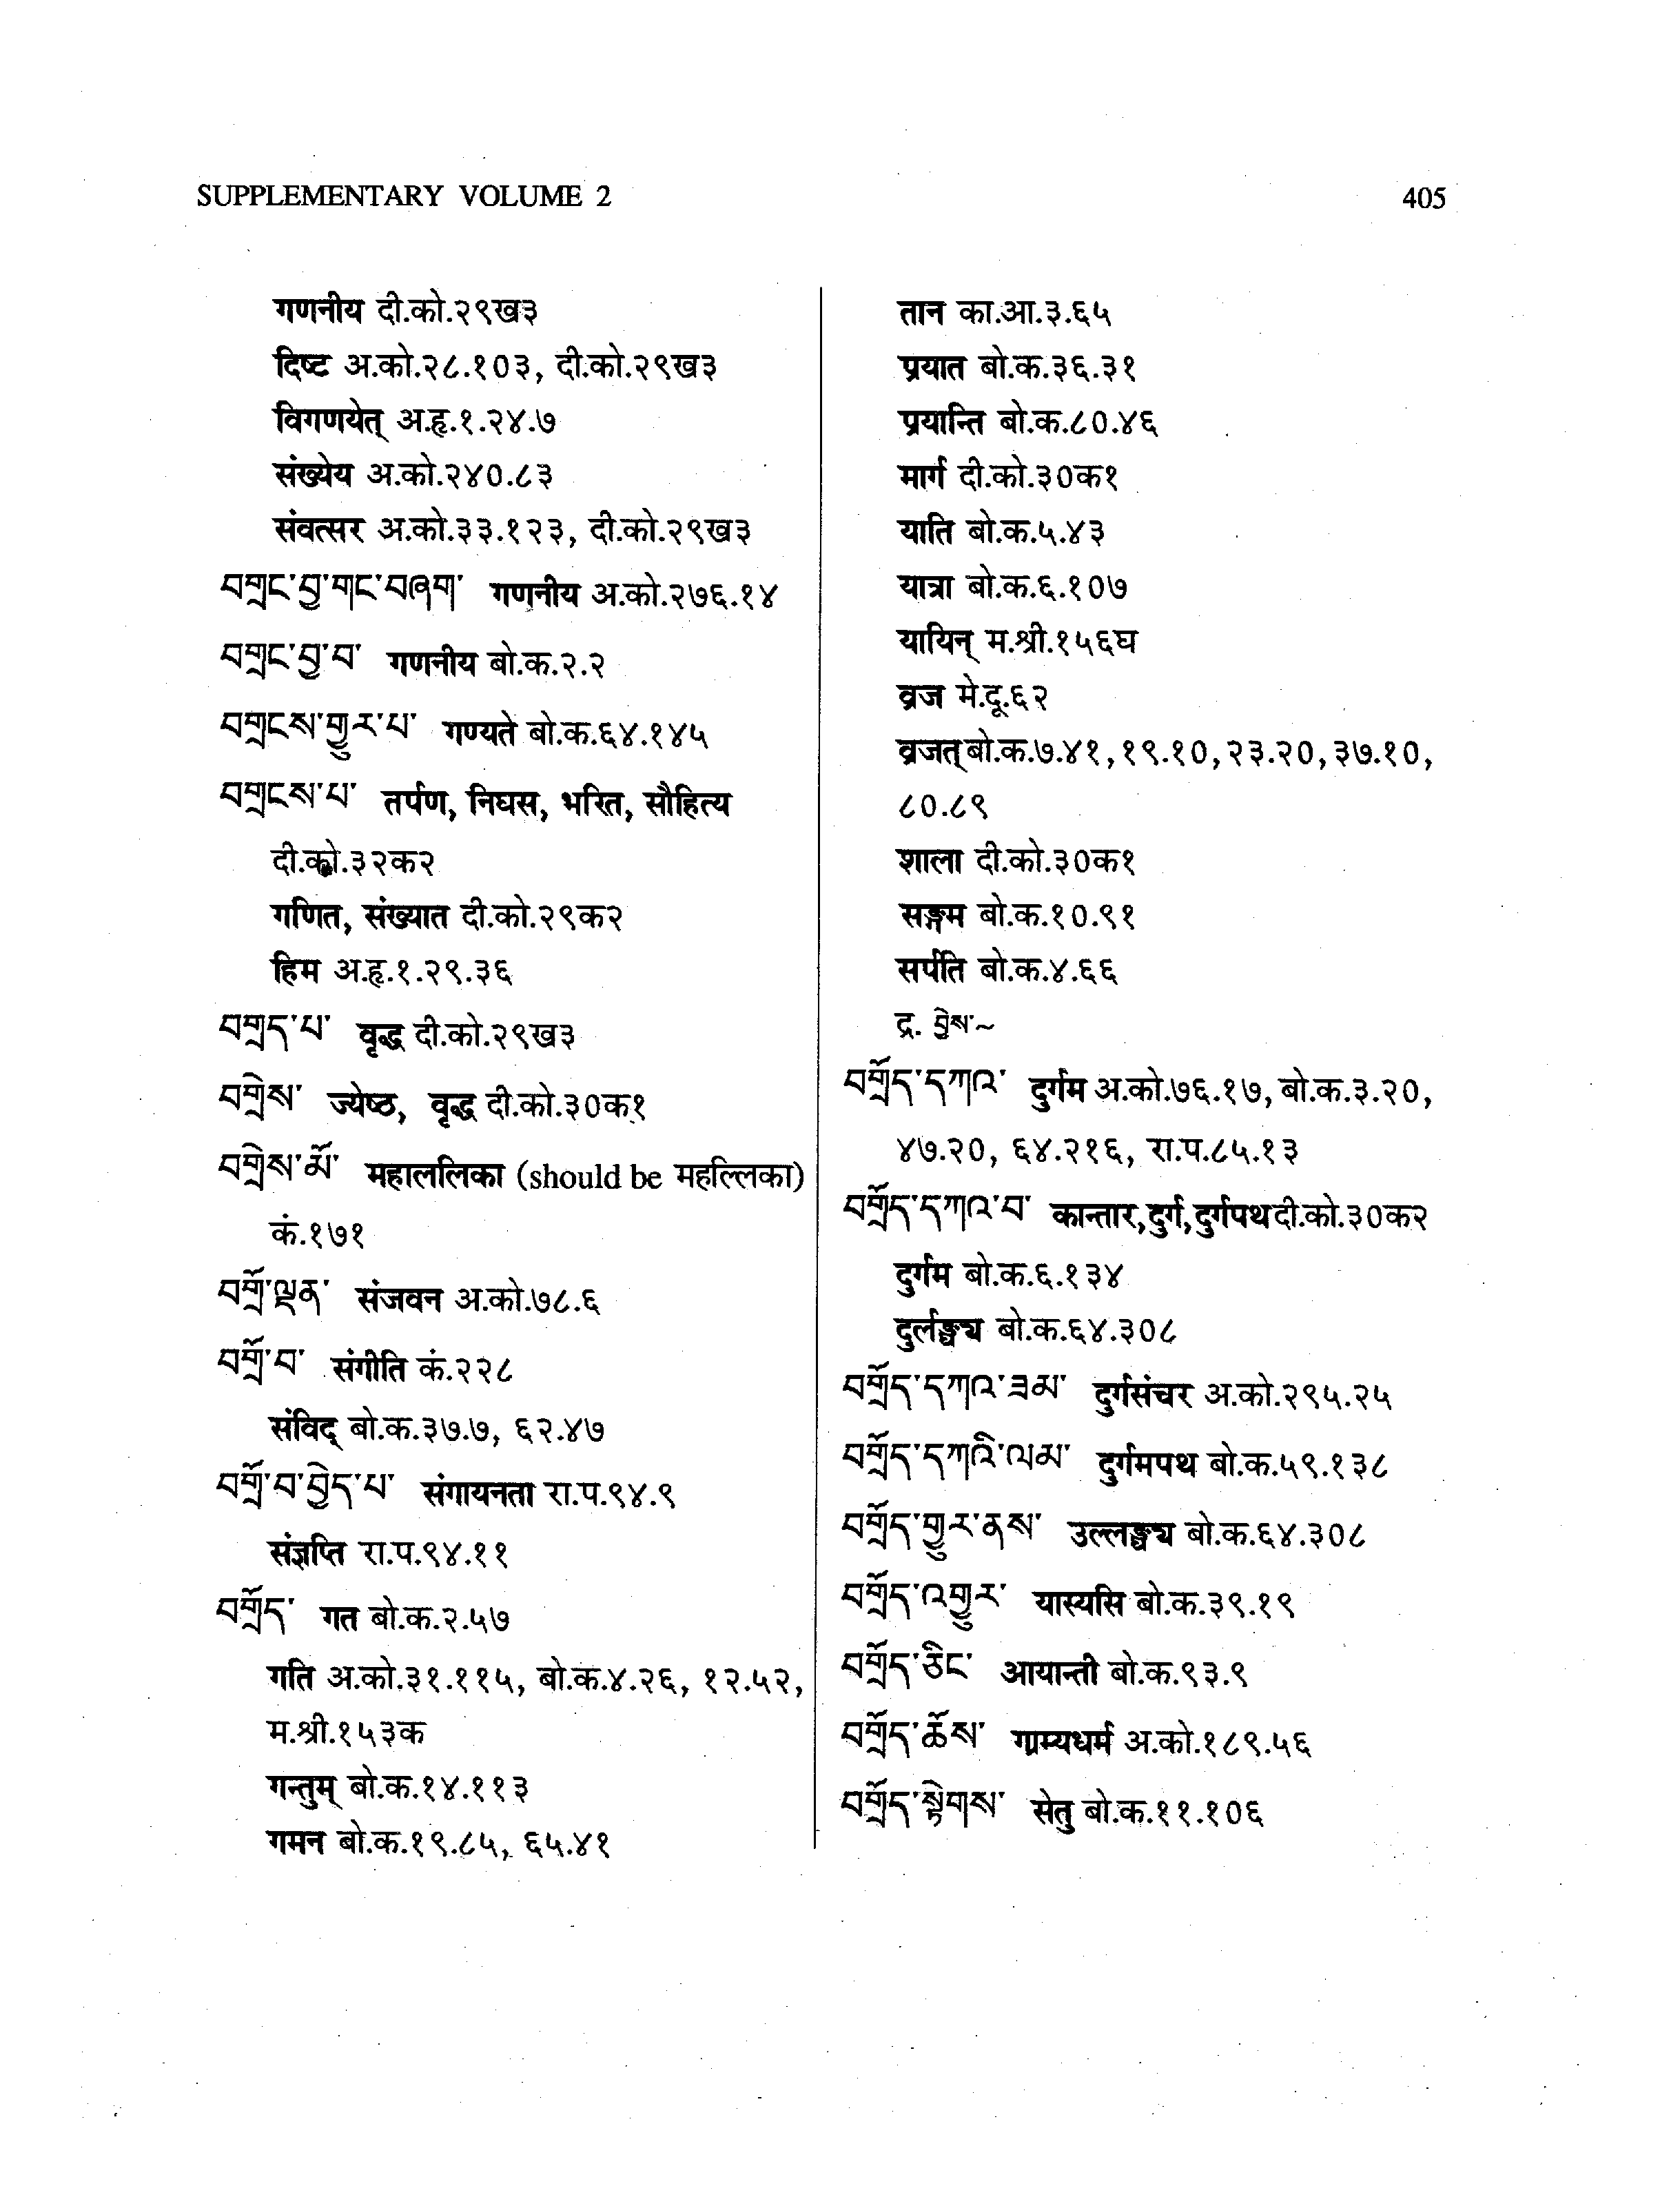 SUPPLEMENTARY VOLUME 2
405
गणनीय दी.को.२९ख३
दिष्ट अ.को.२८.१०३, दी.को.२९ख३
विगणयेत् अ.हृ.१.२४.७
संख्येय अ.को.२४०.८३
संवत्सर अ.को.३३.१२३, दी.को.२९ख३
བགྲང་བྱ་གང་བཞག་ गणनीय अ.को.२७६.१४
བགྲང་བྱ་བ་ गणनीय बो.क.२.२
བགྲངས་གྱུར་པ་ गण्यते बो.क.६४.१४५
བགྲངས་པ་ तर्पण, निघस, भरित, सौहित्य
दी.को.३२क२
गणित, संख्यात दी.को.२९क२
हिम अ.हृ.१.२९.३६
བགྲད་པ་ वृद्ध दी.को.२९ख३
བགྲེས་ ज्येष्ठ, वृद्ध दी.को.३०क१
བགྲེས་མོ་ महाललिका (should be महल्लिका)
कं.१७१
བགྲོ་ལྡན་ संजवन अ.को.७८.६
བགྲོ་བ་ संगीति कं.२२८
संविद् बो.क.३७.७, ६२.४७
བགྲོ་བ་བྱེད་པ་ संगायनता रा.प.९४.९
संज्ञप्ति रा.प.९४.११
བགྲོད་ गत बो.क.२.५७
गति अ.को.३१.११५, बो.क.४.२६, १२.५२,
म.श्री.१५३क
गन्तुम् बो.क.१४.११३
गमन बो.क.१९.८५, ६५.४१
तान का.आ.३.६५
प्रयात बो.क.३६.३१
प्रयान्ति बो.क.८०.४६
मार्ग दी.को.३०क१
याति बो.क.५.४३
यात्रा बो.क.६.१०७
यायिन् म.श्री.१५६घ
व्रज मे.दू.६२
व्रजत् बो.क.७.४१, १९.१०, २३.२०, ३७.१०,
८०.८९
शाला दी.को.३०क१
सङ्गम बो.क.१०.९१
सर्पति बो.क.४.६६
द्र. བྱེས་~
བགྲོད་དཀའ་ दुर्गम अ.को.७६.१७, बो.क.३.२०,
४७.२०, ६४.२१६, रा.प.८५.१३
བགྲོད་དཀའ་བ་ कान्तार, दुर्ग, दुर्गपथ दी.को.३०क२
दुर्गम बो.क.६.१३४
दुर्लङ्घ्य बो.क.६४.३०८
བགྲོད་དཀའ་ཟམ་ दुर्गसंचर अ.को.२९५.२५
བགྲོད་དཀའི་ལམ་ दुर्गमपथ बो.क.५९.१३८
བགྲོད་གྱུར་ནས་ उल्लङ्घ्य बो.क.६४.३०८
བགྲོད་འགྱུར་ यास्यसि बो.क.३९.१९
བགྲོད་ཅིང་ आयान्ती बो.क.९३.९
བགྲོད་ཆོས་ ग्राम्यधर्म अ.को.१८९.५६
བགྲོད་སྟེགས་ सेतु बो.क.११.१०६